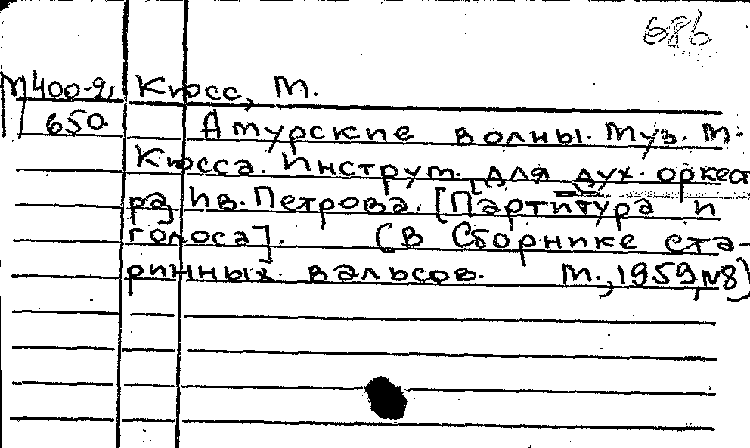 686
М400-9, Кюсс, М.
650 Амурские волны. Муз. М.
Кюсса. Инструм. для дух. оркест
ра Ив. Петрова. [Партитура и
голоса]. (В Сборнике ста-
ринных вальсов. М., 1959, №8)